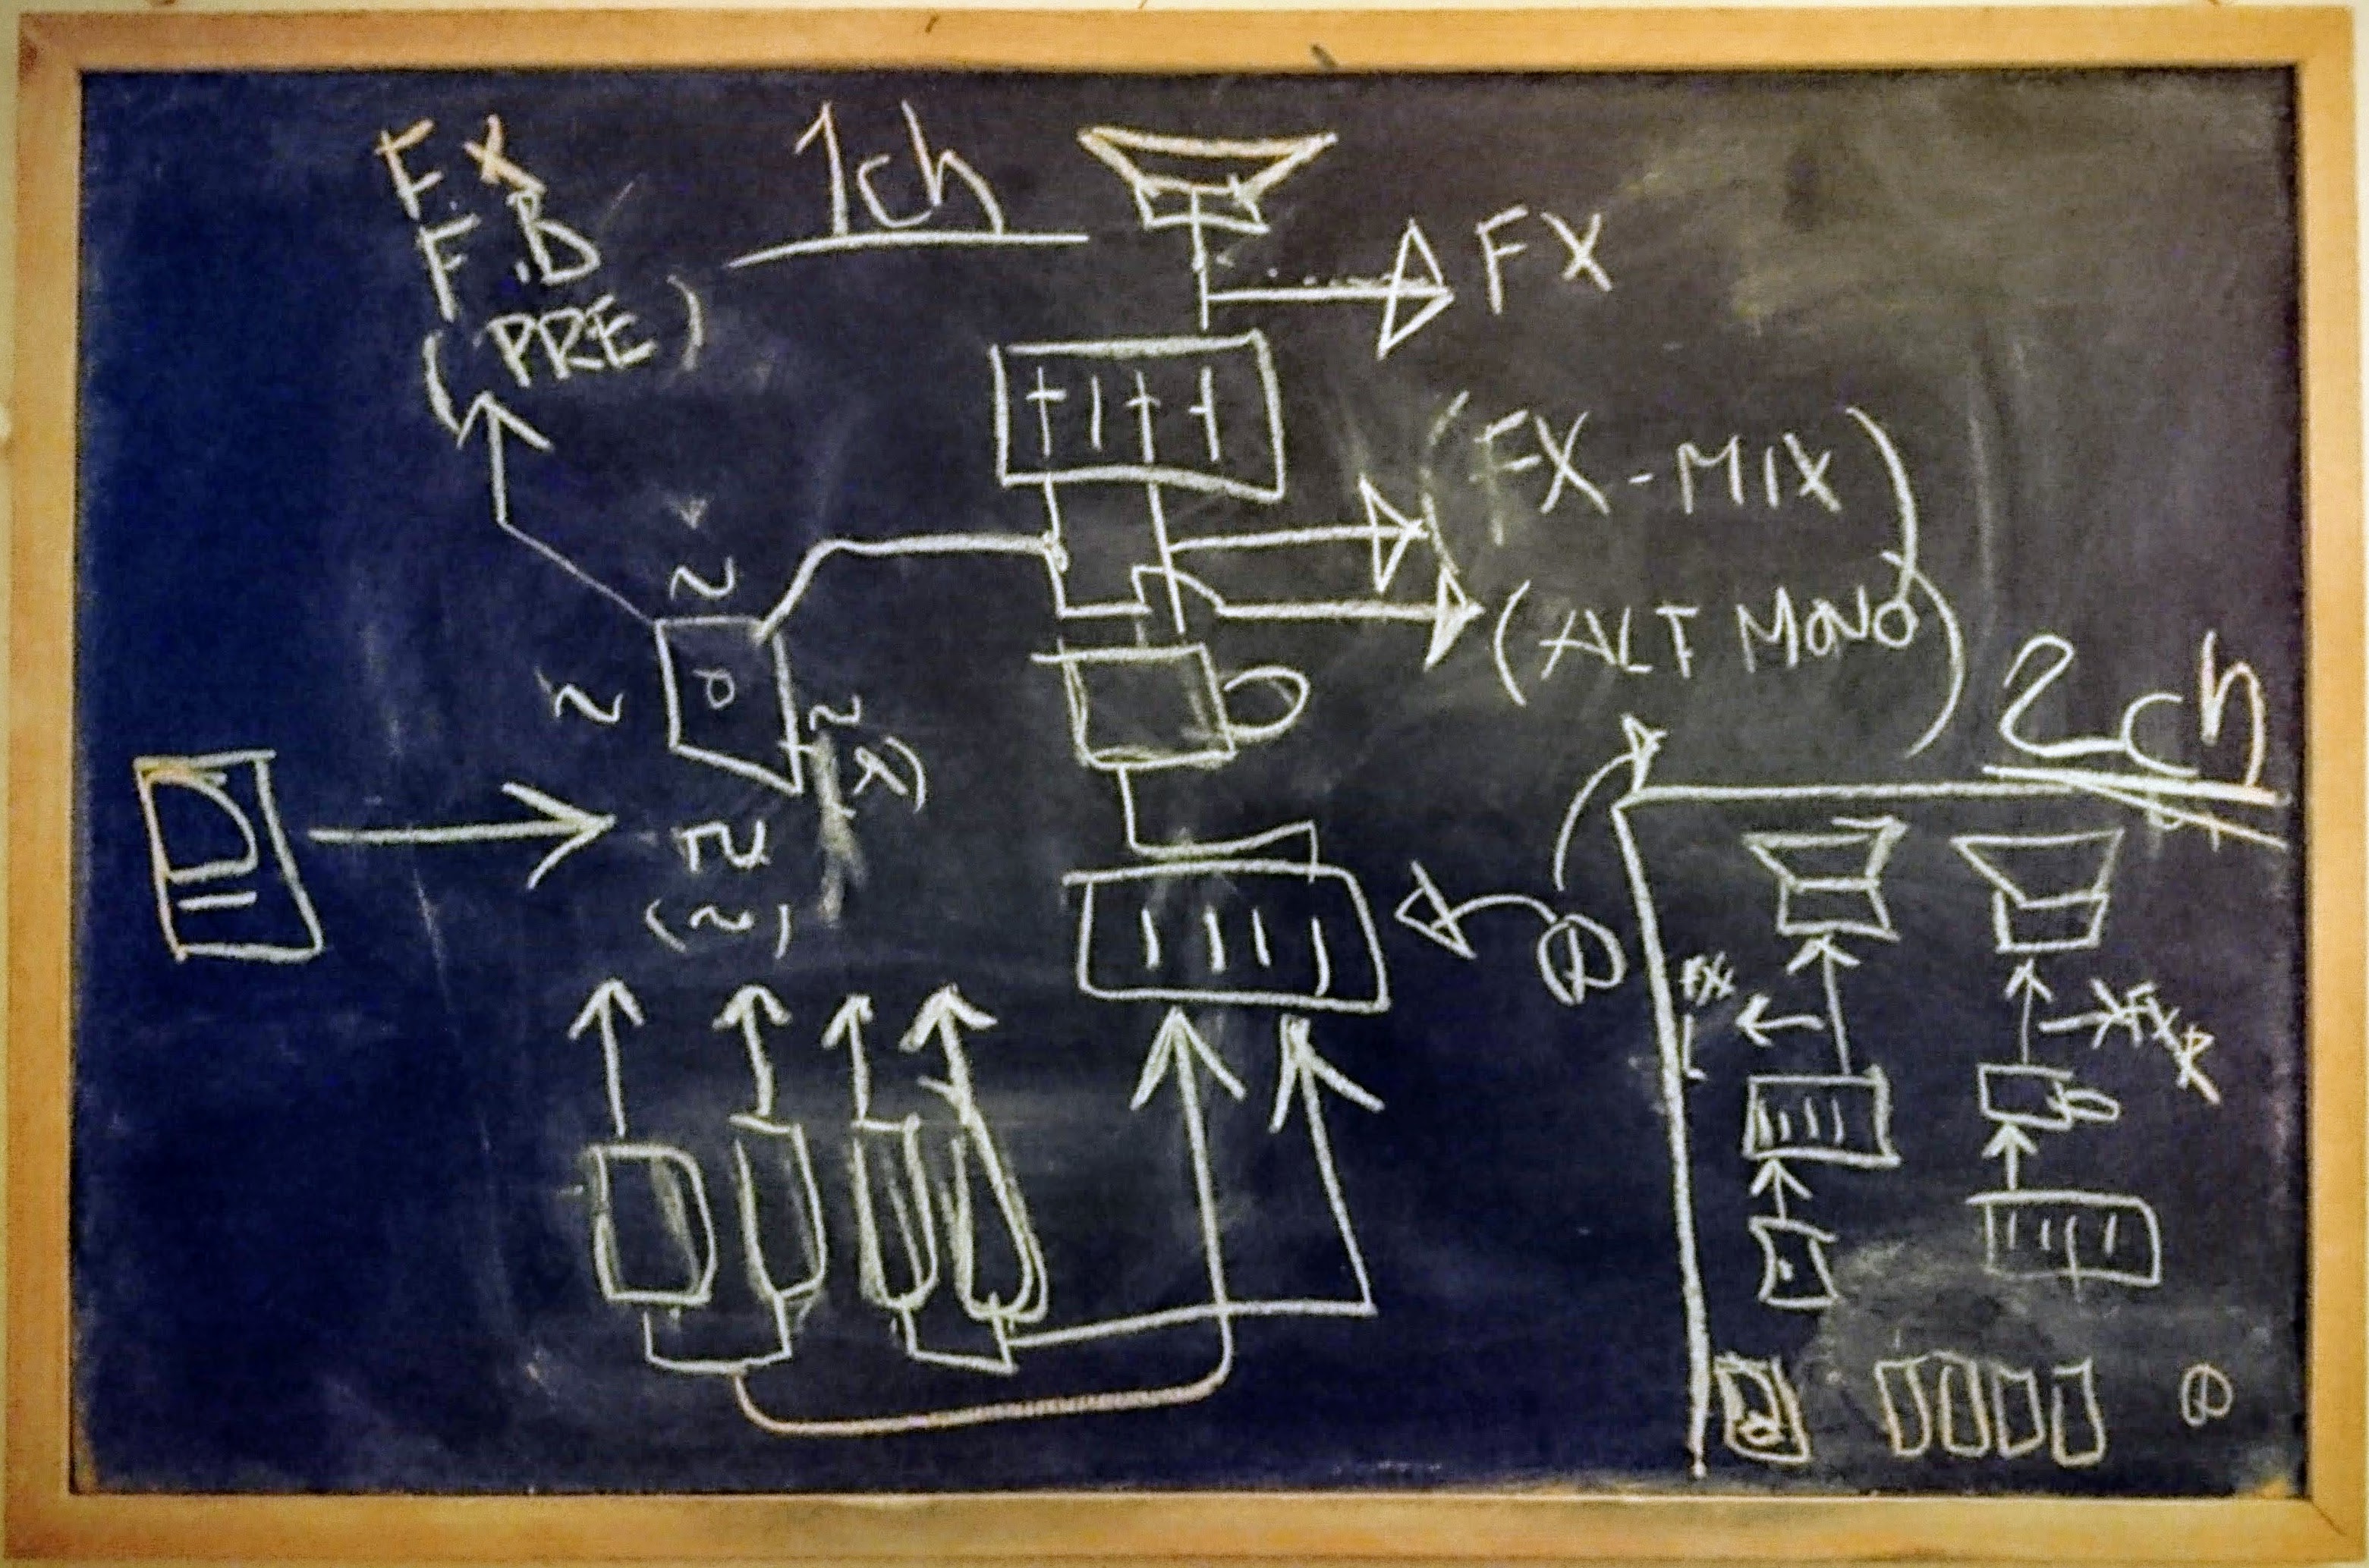 1ch
FX
F.B
(PRE)
FX
(FX-MIX)
(ALT MONO)
2ch
FX
L
FX R